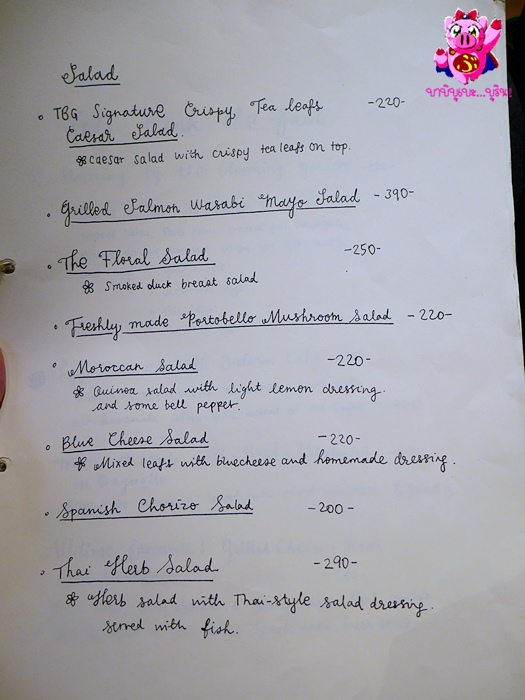 Salad
TBG Signature Crispy Tea leafs -220-
Caesar Salad.
Caesar salad with crispy tea leafs on top.
Grilled Salmon Wasabi Mayo Salad -390-
The Floral Salad -250-
Smoked duck breast salad
Freshly made Portobello Mushroom Salad -220-
Moroccan Salad -220-
Quinoa salad with light lemon dressing.
and some bell pepper.
Blue Cheese Salad -220-
Mixed leafs with bluecheese and homemade dressing.
Spanish Chorizo Salad -200-
Thai Herb Salad -290-
Herb salad with Thai-style salad dressing.
served with fish.